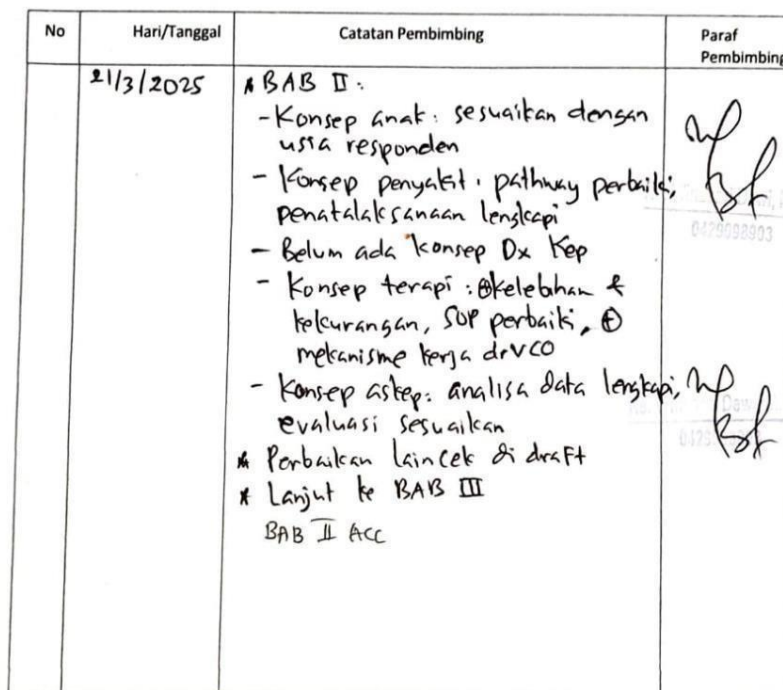 No Hari/Tanggal Catatan Pembimbing Paraf
Pembimbing
21/3/2025 * BAB II :
- Konsep anak : sesuaikan dengan
usia responden
- Konsep penyakit : pathway perbaiki,
penatalaksanaan lengkapi
- Belum ada konsep Dx Kep
- Konsep terapi : ⊕ kelebihan &
kekurangan, SOP perbaiki, ⊕
mekanisme kerja dr VCO
- Konsep askep : analisa data lengkapi,
evaluasi sesuaikan
* Perbaikan lain cek di draft
* Lanjut ke BAB III
BAB II ACC
0429098903